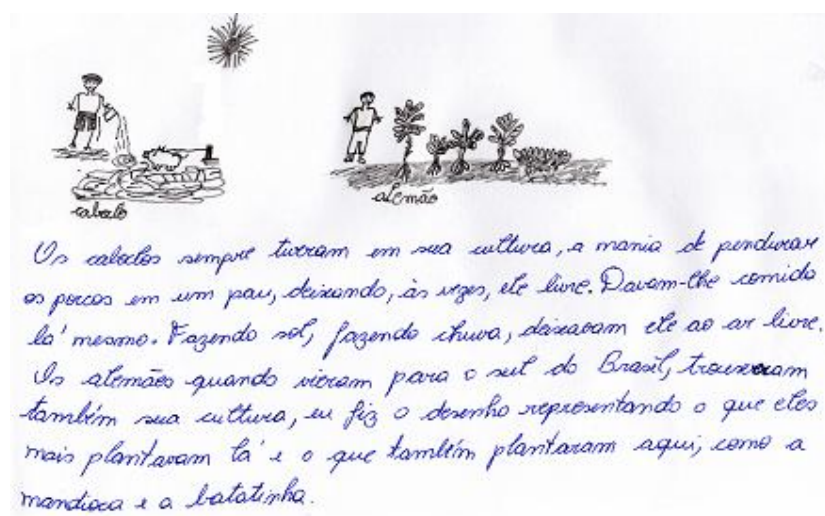 caboclo
alemão
Os caboclos sempre tiveram em sua cultura, a mania de pendurar
os porcos em um pau, deixando, às vezes, ele livre. Davam-lhe comida
lá mesmo. Fazendo sol, fazendo chuva, deixavam ele ao ar livre.
Os alemães quando vieram para o sul do Brasil, trouxeram
também sua cultura, eu fiz o desenho representando o que eles
mais plantavam lá e o que também plantaram aqui, como a
mandioca e a batatinha.